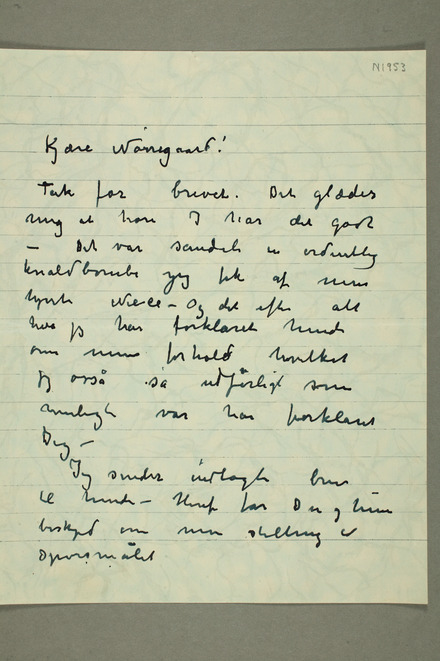 N1953
Kjære Nørregaard!
Tak for brevet. Det glæder
mig at høre I har det godt
– Det var sandeli en ordentlig
knaldbombe jeg fik af min
kjære Niece – og det efter alt
hva jg har forklaret hende
om mine forhold hvilket
jg også så udførligt som
muligt var har forklaret
Dig –
Jeg sender indlagte brev
til hende – Heraf far Du og hun
besked om min stilling til
Spørsmålet